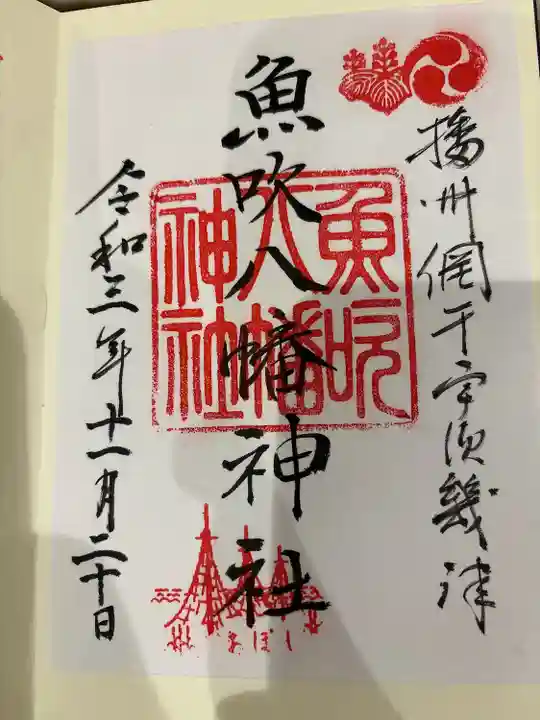 播州網干宇須幾津
魚吹八幡神社
魚吹
八幡
神社
令和三年十一月二十日
あぼし